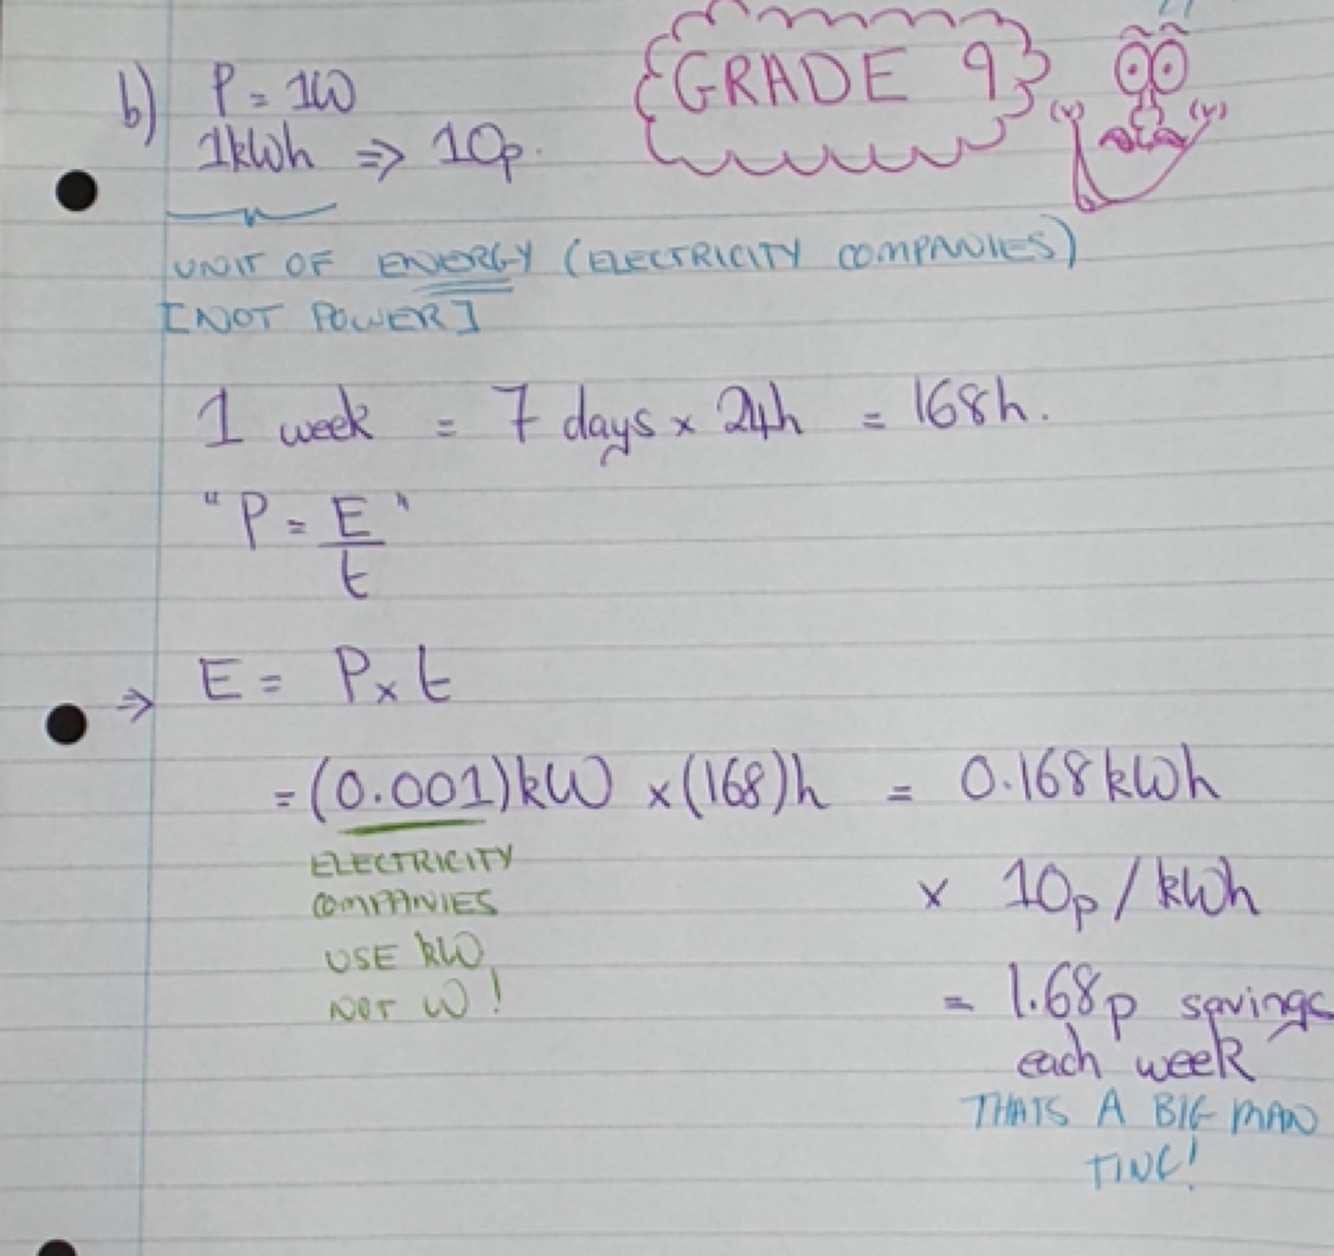 b) P = 1W
1kWh ⇒ 10p.
GRADE 9
UNIT OF ENERGY (ELECTRICITY COMPANIES)
[NOT POWER]
1 week = 7 days x 24h = 168h.
"P = E/t"
⇒ E = P x t
= (0.001)kW x (168)h = 0.168kWh
ELECTRICITY
COMPANIES
USE kW
NOT W!
x 10p/kWh
= 1.68p savings
each week
THATS A BIG MAN
TING!